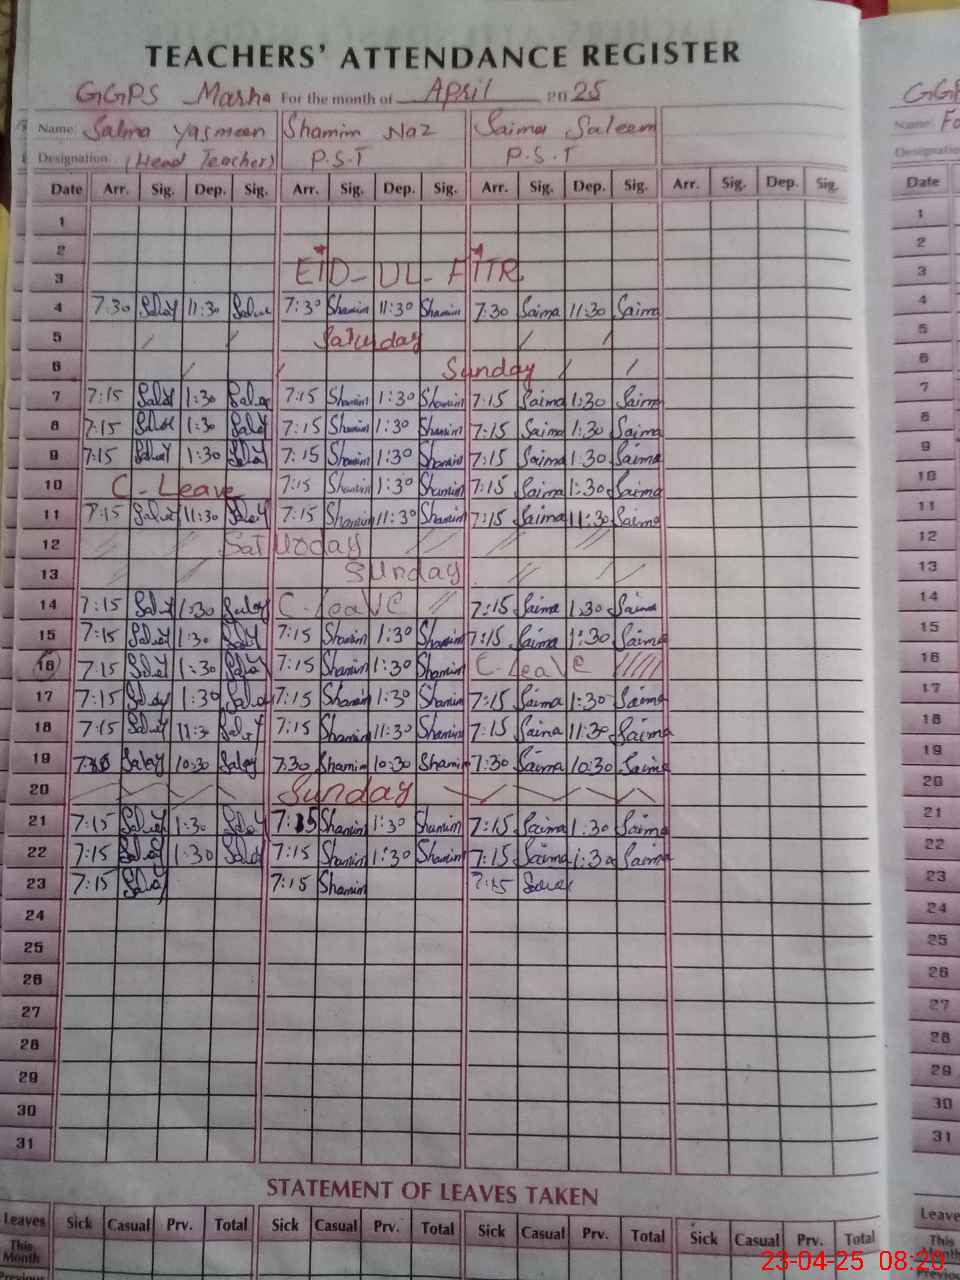 TEACHERS' ATTENDANCE REGISTER
GGPS Masha For the month of April 2025
Name: Salma Yasmeen Shamim Naz Saima Saleem
Designation: (Head Teacher) P.S.T P.S.T
Date Arr. Sig. Dep. Sig. Arr. Sig. Dep. Sig. Arr. Sig. Dep. Sig. Arr. Sig. Dep. Sig.
1
2
3 EID-UL-FITR
4 7:30 11:30 7:30 Shamim 11:30 Shamim 7:30 Saima 11:30 Saima
5 Saturday
6 Sunday
7 7:15 1:30 7:15 Shamim 1:30 Shamim 7:15 Saima 1:30 Saima
8 7:15 1:30 7:15 Shamim 1:30 Shamim 7:15 Saima 1:30 Saima
9 7:15 1:30 7:15 Shamim 1:30 Shamim 7:15 Saima 1:30 Saima
10 C-Leave 7:15 Shamim 1:30 Shamim 7:15 Saima 1:30 Saima
11 7:15 11:30 7:15 Shamim 11:30 Shamim 7:15 Saima 11:30 Saima
12 Saturday
13 Sunday
14 7:15 1:30 C-leave 7:15 Saima 1:30 Saima
15 7:15 1:30 7:15 Shamim 1:30 Shamim 7:15 Saima 1:30 Saima
16 7:15 1:30 7:15 Shamim 1:30 Shamim C-leave
17 7:15 1:30 7:15 Shamim 1:30 Shamim 7:15 Saima 1:30 Saima
18 7:15 11:30 7:15 Shamim 11:30 Shamim 7:15 Saima 11:30 Saima
19 7:30 10:30 7:30 Shamim 10:30 Shamim 7:30 Saima 10:30 Saima
20 Sunday
21 7:15 1:30 7:15 Shamim 1:30 Shamim 7:15 Saima 1:30 Saima
22 7:15 1:30 7:15 Shamim 1:30 Shamim 7:15 Saima 1:30 Saima
23 7:15 7:15 Shamim 7:15
24
25
26
27
28
29
30
31
STATEMENT OF LEAVES TAKEN
Leaves Sick Casual Prv. Total Sick Casual Prv. Total Sick Casual Prv. Total Sick Casual Prv. Total
This Month
Previous
Name:
Designation
Date
1
2
3
4
5
6
7
8
9
10
11
12
13
14
15
16
17
18
19
20
21
22
23
24
25
26
27
28
29
30
31
Leave
This
Month
Previous
23-04-25 08:20